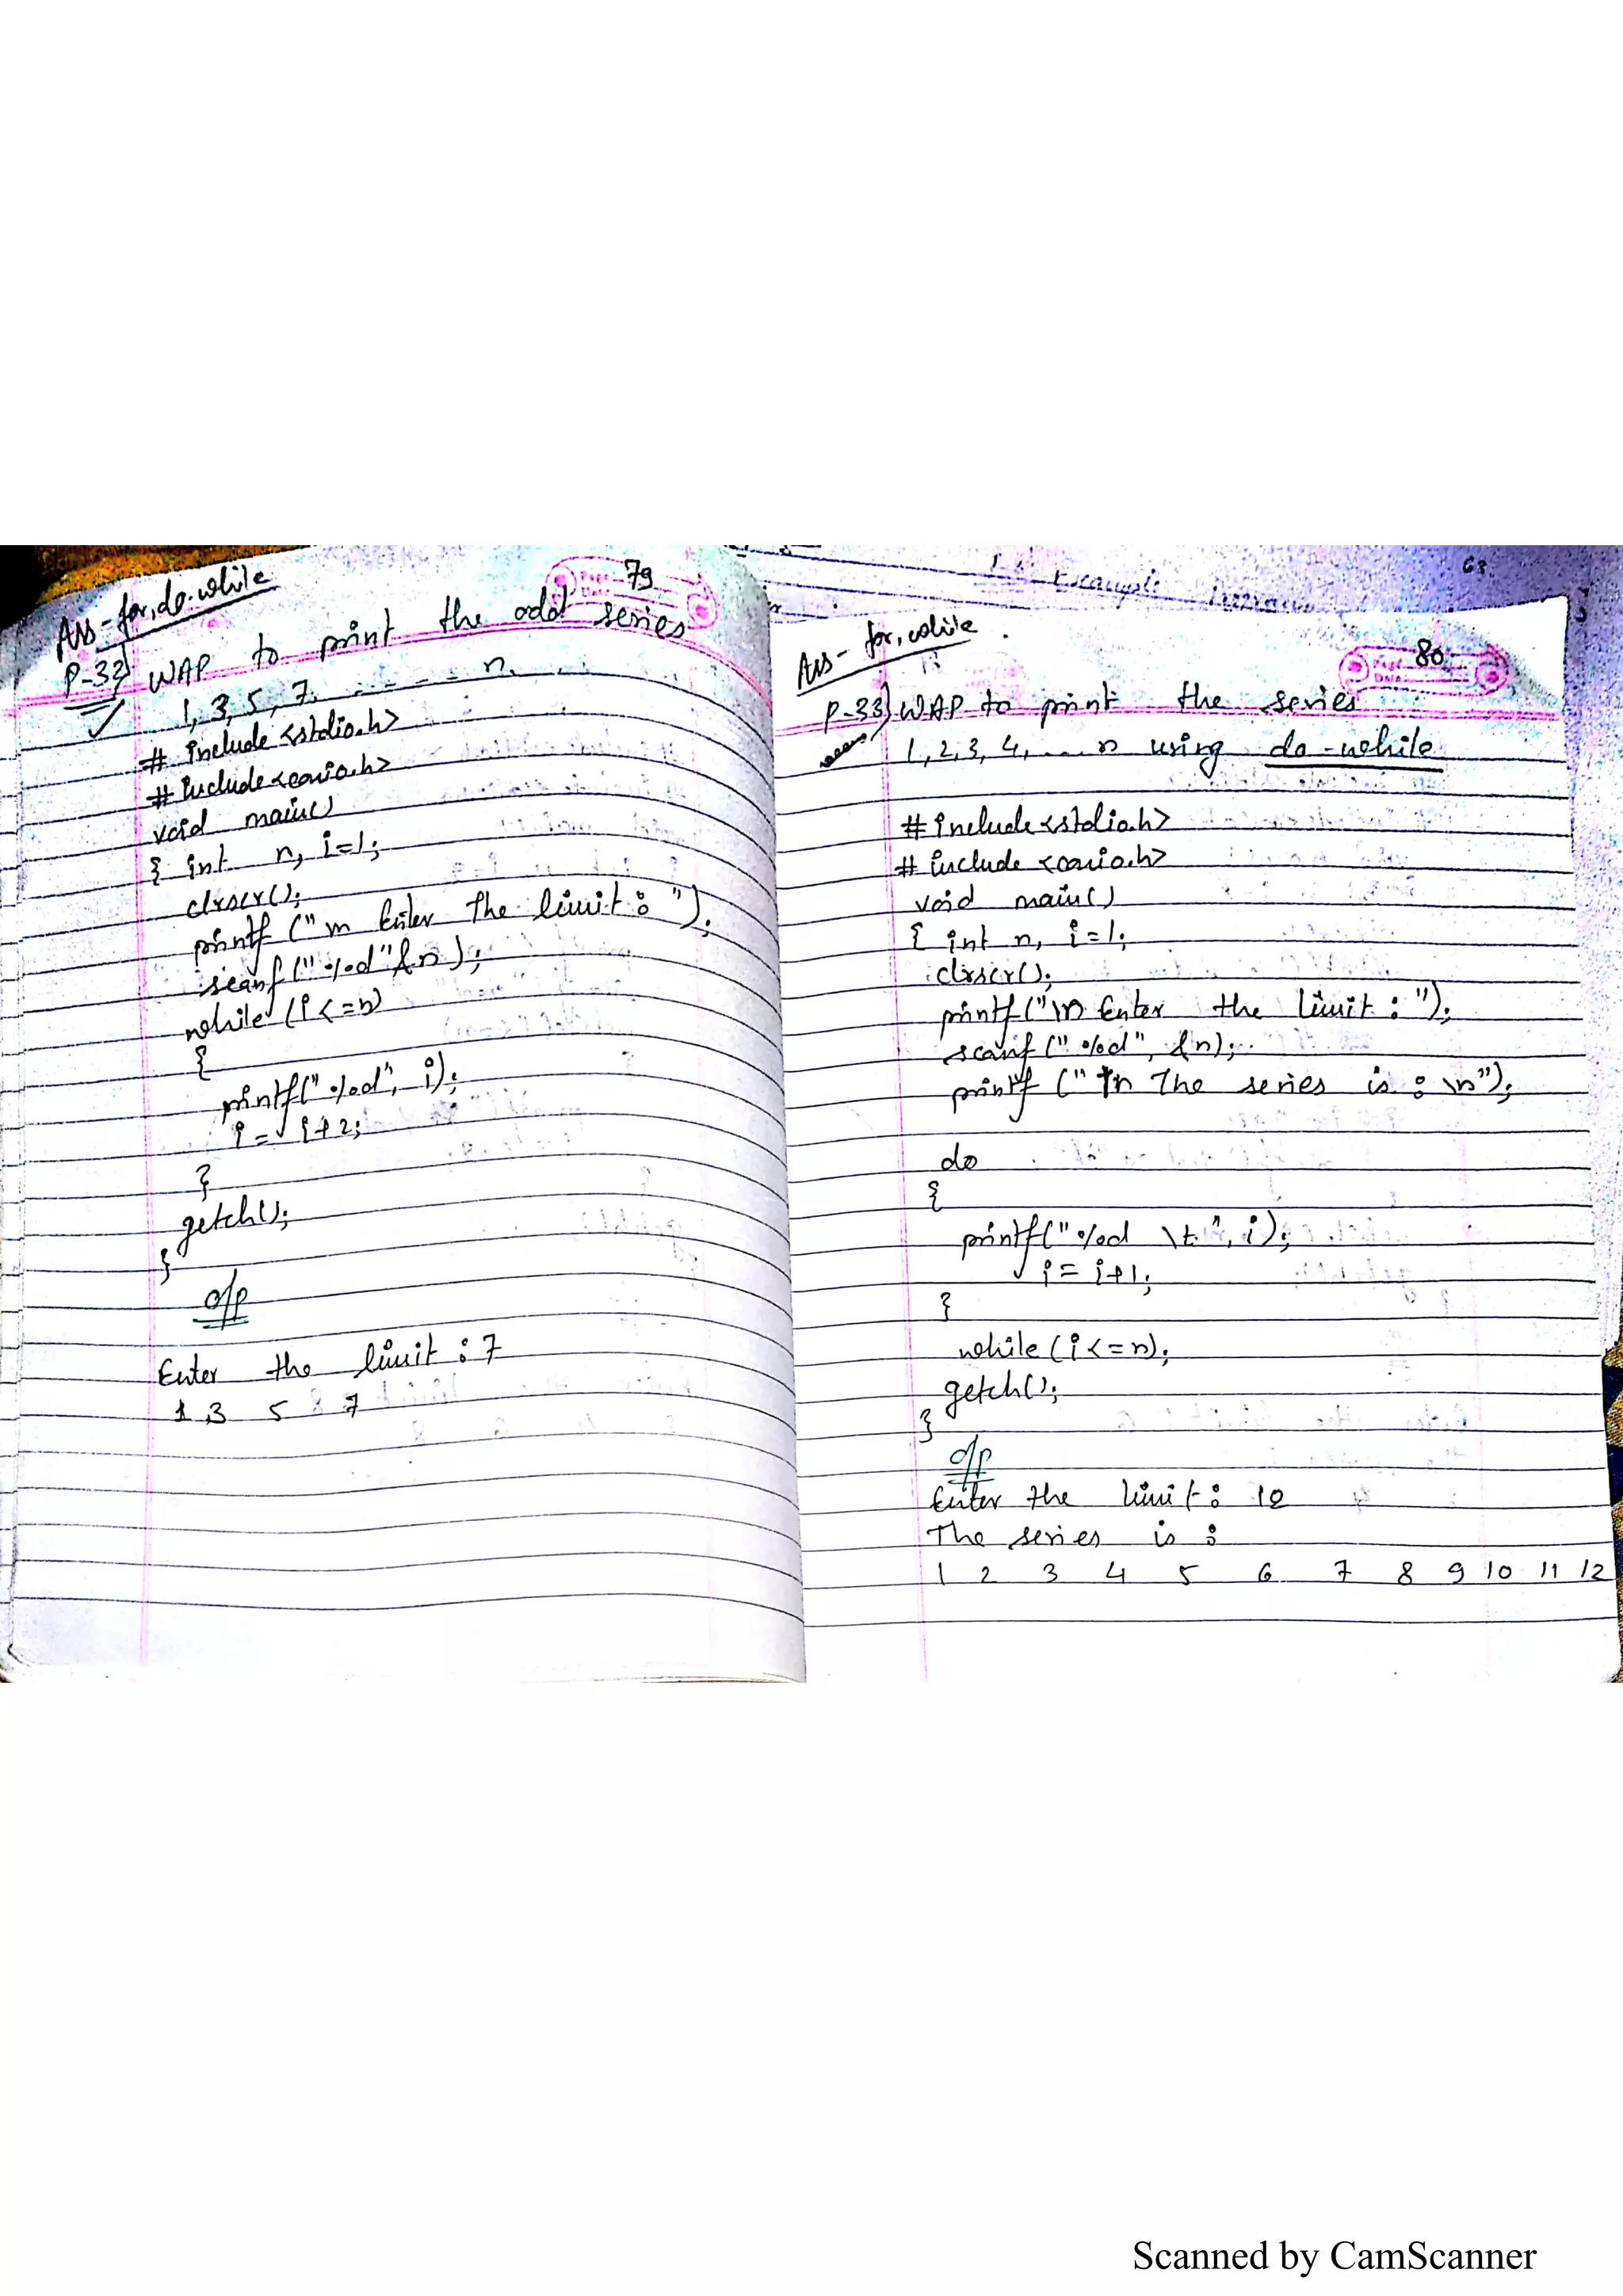 79
Ass - for, do-while
P-32) WAP to print the odd series
1, 3, 5, 7, - - - - - n.
# include <stdio.h>
# include <conio.h>
void main()
{ int n, i=1;
clrscr();
printf ("\n Enter The limit : ");
scanf ("%d"&n);
while (i<=n)
{
printf("%d", i);
i = i+2;
}
getch();
}
o/p
Enter the limit : 7
1 3 5 7
63
Example
Ass - for, while.
80
P-33) WAP to print the series
1, 2, 3, 4, .... n using do-while
# include <stdio.h>
# include <conio.h>
void main()
{ int n, i=1;
clrscr();
printf ("\n Enter the limit : ");
scanf ("%d", &n);
printf ("\n The series is : \n");
do
{
printf("%d \t", i);
i = i+1;
}
while (i<=n);
getch();
}
o/p
Enter the limit : 10
The series is :
1 2 3 4 5 6 7 8 9 10 11 12
Scanned by CamScanner